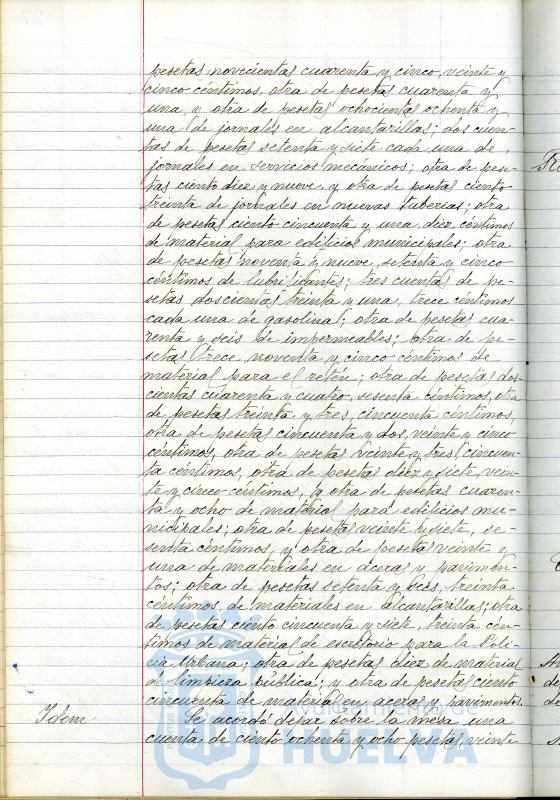 pesetas novecientas cuarenta y cinco, veinte y
cinco céntimos, otra de pesetas cuarenta y
una, y otra de pesetas ochocientas ochenta y
una de jornales en alcantarillas; dos cuen-
tas de pesetas setenta y siete cada una de
jornales en servicios mecánicos; otra de pese-
tas ciento diez y nueve, y otra de pesetas ciento
treinta de jornales en nuevas tuberias; otra
de pesetas ciento cincuenta y una, diez céntimos
de material para edificios municipales; otra
de pesetas noventa y nueve, setenta y cinco
céntimos de lubrificantes; tres cuentas de pe-
setas doscientas treinta y una, trece céntimos
cada una de gasolina; otra de pesetas cua-
renta y seis de impermeables; otra de pe-
setas trece, noventa y cinco céntimos de
material para el retén; otra de pesetas dos-
cientas cuarenta y cuatro, sesenta céntimos, otra
de pesetas treinta y tres, cincuenta céntimos,
otra de pesetas cincuenta y dos, veinte y cinco
céntimos, otra de pesetas veinte y tres, cincuen-
ta céntimos, otra de pesetas diez y siete, vein-
te y cinco céntimos, y otra de pesetas cuaren-
ta y ocho de material para edificios mu-
nicipales; otra de pesetas veinte y siete, se-
senta céntimos, y otra de pesetas veinte y
una de materiales en aceras y pavimen-
tos; otra de pesetas setenta y seis, treinta
céntimos, de materiales en alcantarillas; otra
de pesetas ciento cincuenta y siete, treinta cén-
timos de material de escritorio para la Poli-
cia Urbana; otra de pesetas diez de material
de limpieza pública; y otra de pesetas ciento
cincuenta de material en aceras y pavimentos.
Idem Se acordó dejar sobre la mesa una
cuenta de ciento ochenta y ocho pesetas, veinte
HUELVA